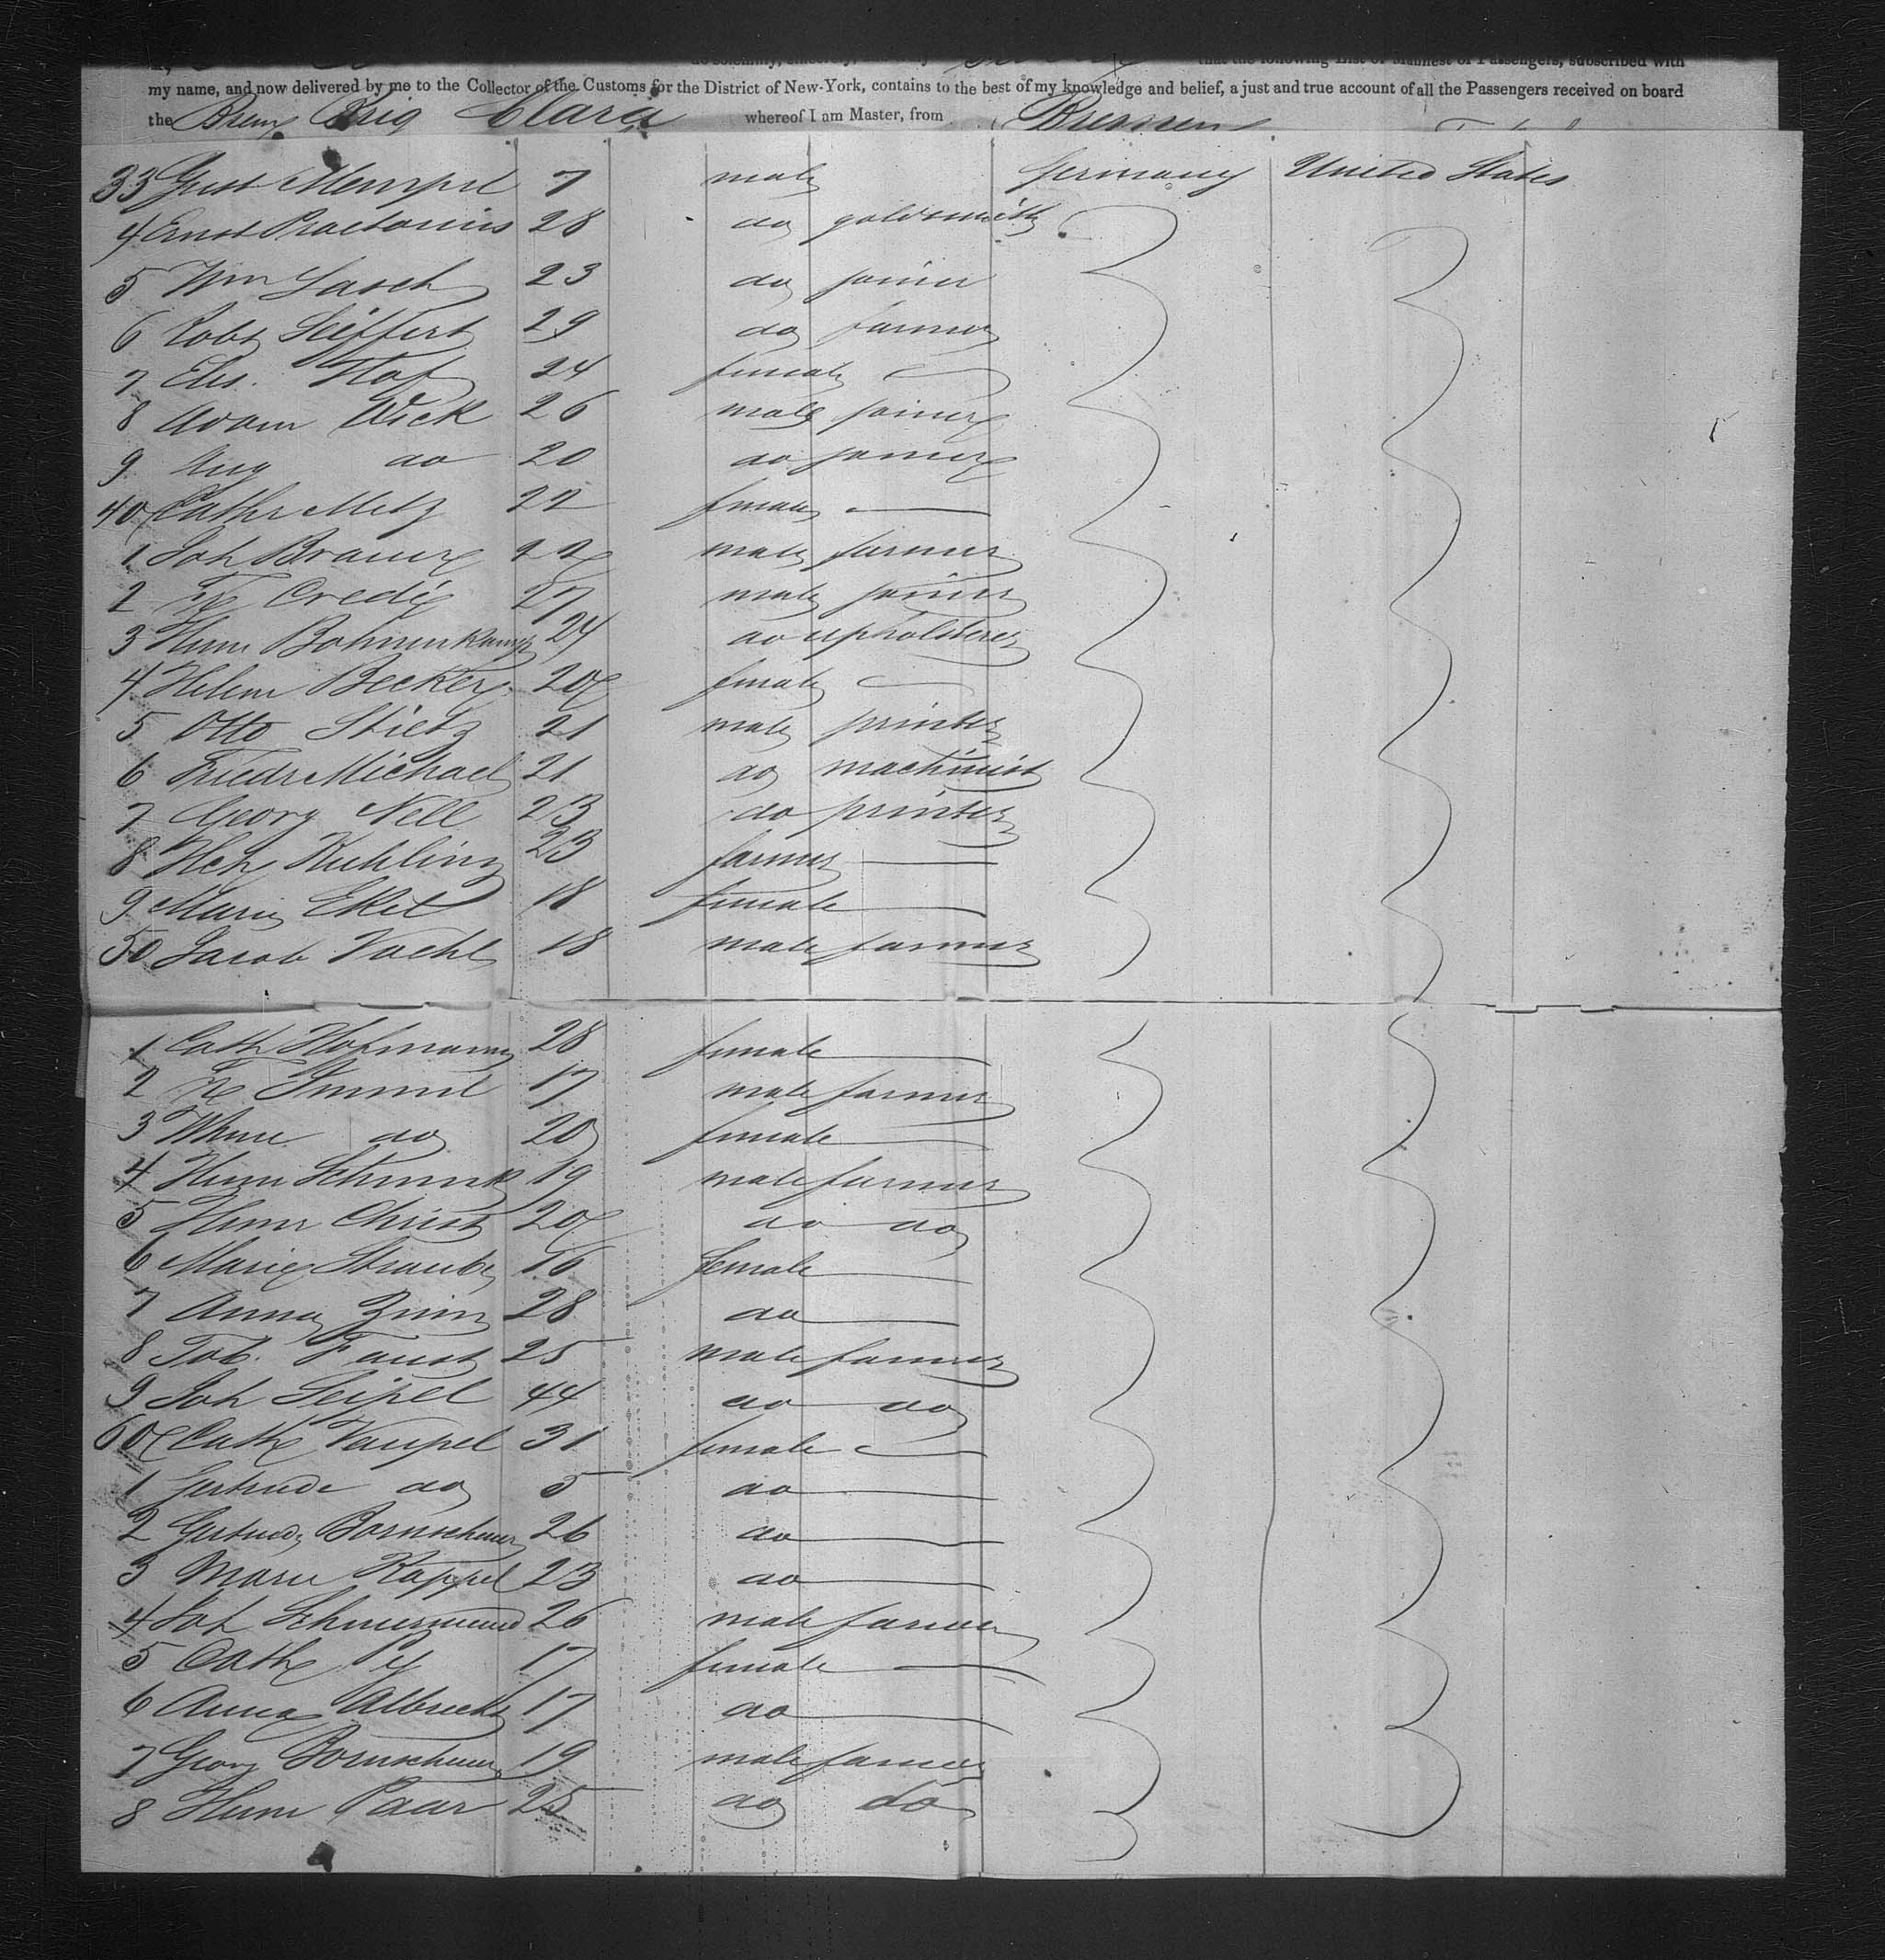 my name, and now delivered by me to the Collector of the Customs for the District of New-York, contains to the best of my knowledge and belief, a just and true account of all the Passengers received on board
the Brem Brig Clara whereof I am Master, from Bremen
33 Gust Mempel 7 male Germany United States
4 Ernst Praetorius 28 do goldsmith
5 Wm Lasch 23 do joiner
6 Robt Seiffert 29 do farmer
7 Elis. Hof 24 female
8 Adam Wick 26 male joiner
9 Aug do 20 do joiner
40 Cathr Metz 22 female
1 Joh Brauer 22 male farmer
2 Fr Credé 27 male joiner
3 Herm Bohnenkamp 24 do upholsterer
4 Helene Becker 20 female
5 Otto Stietz 21 male printer
6 Friedr Michael 21 do machinist
7 Georg Nell 23 do printer
8 Hch Kuhling 23 farmer
9 Marie Ekel 18 female
50 Jacob Vaehl 18 male farmer
1 Cath Hofmann 28 female
2 Fr Immel 17 male farmer
3 Whme do 20 female
4 Herm Schmuk 19 male farmer
5 Herm Christ 20 do do
6 Marie Straube 16 female
7 Anna Zinn 28 do
8 Tob. Faust 25 male farmer
9 Joh Seipel 44 do do
60 Cath Vaupel 31 female
1 Gertrude do 5 do
2 Gertrude Bornscheuer 26 do
3 Marie Kappel 23 do
4 Joh 26 male farmer
5 Cath Py 17 female
6 Anna Albrecht 17 do
7 Georg Bornscheuer 19 male farmer
8 Herm Paar 25 do do